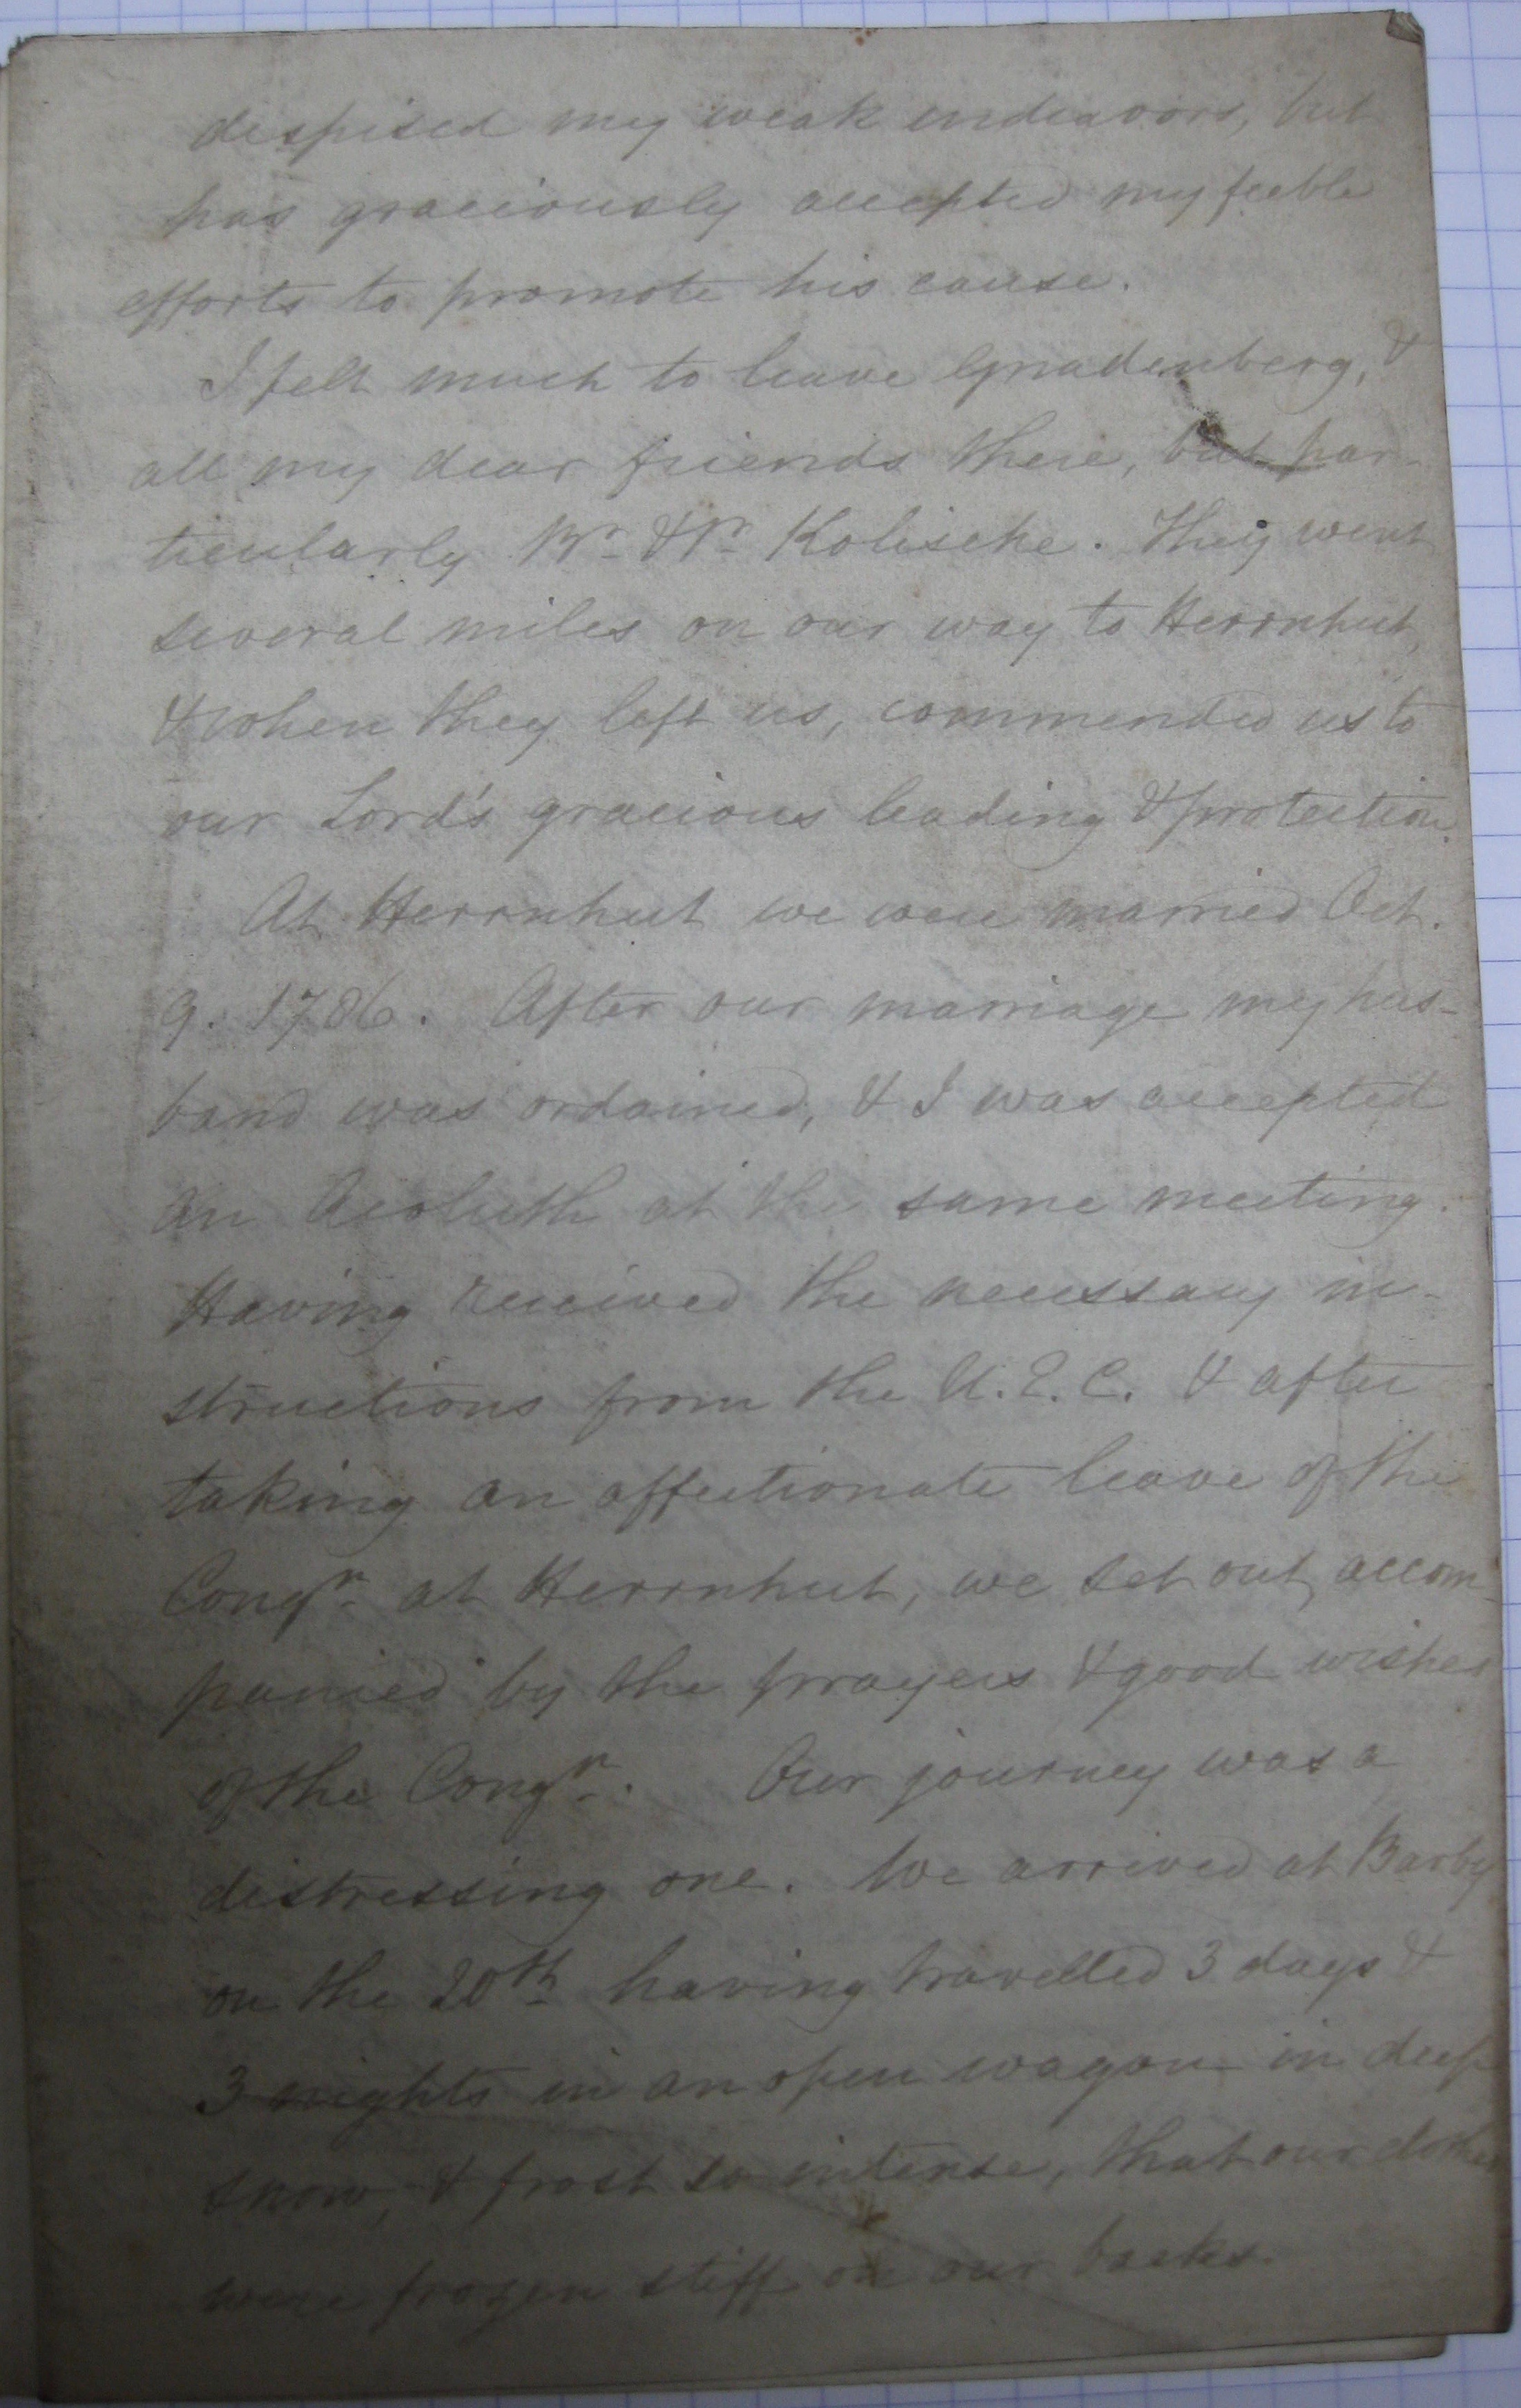 despised my weak endeavors, but
has graciously accepted my feeble
efforts to promote his cause.
I felt much to leave Gnadenberg, &
all my dear friends there, but par-
ticularly Br. & Sr. Kolische. They went
several miles on our way to Herrnhut,
& when they left us, commended us to
our Lord's gracious leading & protection.
At Herrnhut we were married Oct.
9. 1786. After our marriage my hus-
band was ordained, & I was accepted
an Acoluth at the same meeting.
Having received the necessary in-
structions from the U.E.C. & after
taking an affectionate leave of the
Congn. at Herrnhut, we set out, accom-
panied by the prayers & good wishes
of the Congn. Our journey was a
distressing one. We arrived at Barby
on the 20th having travelled 3 days &
3 nights in an open wagon in deep
snow, & frost so intense, that our clothes
were frozen stiff on our backs.